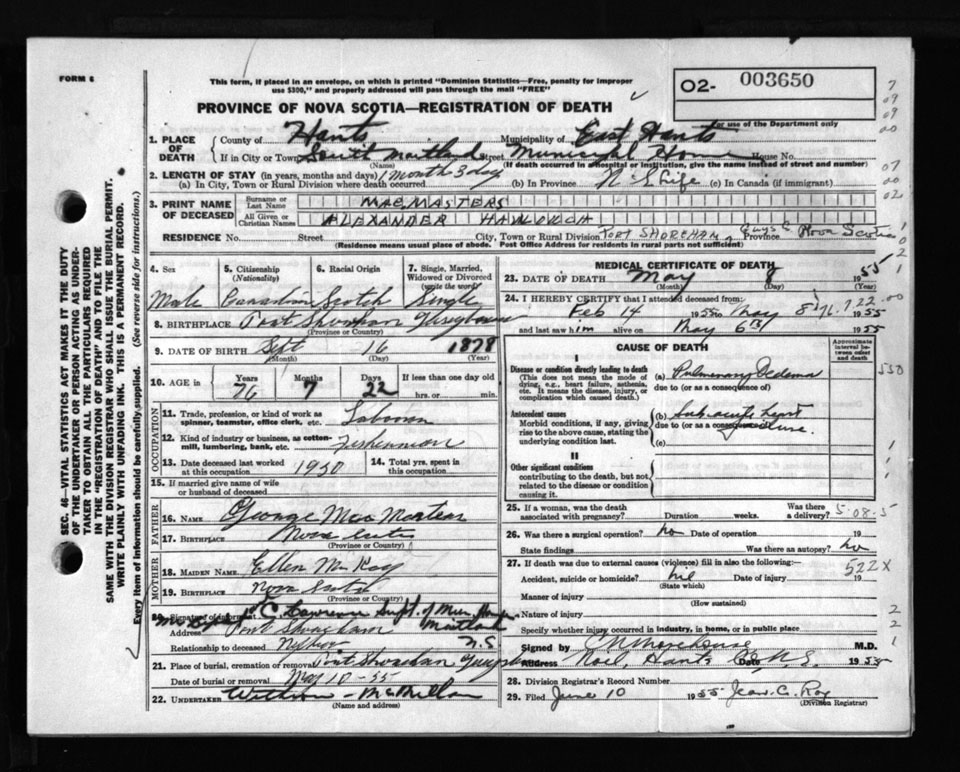 FORM 6
This form, if placed in an envelope, on which is printed "Dominion Statistics—Free, penalty for improper
use $300," and properly addressed will pass through the mail "FREE"
02- 003650
For use of the Department only
PROVINCE OF NOVA SCOTIA—REGISTRATION OF DEATH
SEC. 46—VITAL STATISTICS ACT MAKES IT THE DUTY
OF THE UNDERTAKER OR PERSON ACTING AS UNDER-
TAKER TO OBTAIN ALL THE PARTICULARS REQUIRED
IN THE "REGISTRATION OF DEATH" AND TO FILE THE
SAME WITH THE DIVISION REGISTRAR WHO SHALL ISSUE THE BURIAL PERMIT.
WRITE PLAINLY WITH UNFADING INK. THIS IS A PERMANENT RECORD.
Every item of Information should be carefully supplied. (See reverse side for instructions.)
1. PLACE OF DEATH
County of Hants Municipality of East Hants
If in City or Town South Maitland Street Municipal Home House No.
(Name) (If death occurred in hospital or institution, give the name instead of street and number)
2. LENGTH OF STAY (in years, months and days)
(a) In City, Town or Rural Division where death occurred 1 month 3 days (b) In Province N S Life (c) In Canada (if immigrant)
3. PRINT NAME OF DECEASED
Surname or Last Name MACMASTERS
All Given or Christian Names ALEXANDER
RESIDENCE No. Street City, Town or Rural Division PORT SHOREHAM Guys Co Province Nova Scotia
(Residence means usual place of abode. Post Office Address for residents in rural parts not sufficient)
4. Sex Male
5. Citizenship (Nationality) Canadian
6. Racial Origin Scotch
7. Single, Married, Widowed or Divorced (write the word) Single
8. BIRTHPLACE Port Shoreham Guysboro
(Province or Country)
9. DATE OF BIRTH Sept 16 1878
(Month) (Day) (Year)
10. AGE in Years Months Days If less than one day old
76 7 22 hrs. or min.
OCCUPATION
11. Trade, profession, or kind of work as spinner, teamster, office clerk, etc. Labourer
12. Kind of industry or business, as cotton-mill, lumbering, bank, etc. Fisherman
13. Date deceased last worked at this occupation 1950 14. Total yrs. spent in this occupation
15. If married give name of wife or husband of deceased
FATHER
16. NAME George MacMasters
17. BIRTHPLACE Nova Scotia
(Province or Country)
MOTHER
18. MAIDEN NAME Ellen McKay
19. BIRTHPLACE Nova Scotia
(Province or Country)
Signature of informant C. Lawrence Supt. of Mun Home
Address Port Shoreham Maitland
Relationship to deceased Nephew N.S
21. Place of burial, cremation or removal Port Shoreham
Date of burial or removal May 10-55
22. UNDERTAKER McMillan
(Name and address)
MEDICAL CERTIFICATE OF DEATH
23. DATE OF DEATH May 8 1955
(Month) (Day) (Year)
24. I HEREBY CERTIFY that I attended deceased from:
Feb 14 1955 to May 8 1955
and last saw him alive on May 6th 1955
CAUSE OF DEATH
Approximate interval between onset and death
I
Disease or condition directly leading to death
(This does not mean the mode of dying, e.g., heart failure, asthenia, etc. It means the disease, injury, or complication which caused death.)
(a) Pulmonary Oedema
due to (or as a consequence of)
Antecedent causes
Morbid conditions, if any, giving rise to the above cause, stating the underlying condition last.
(b) Sub-acute heart failure.
due to (or as a consequence of)
(c)
II
Other significant conditions
contributing to the death, but not related to the disease or condition causing it.
25. If a woman, was the death associated with pregnancy? Duration weeks. Was there a delivery?
5-08-5
26. Was there a surgical operation? no Date of operation
State findings Was there an autopsy? no
27. If death was due to external causes (violence) fill in also the following: 522X
Accident, suicide or homicide? nil Date of injury
(State which)
Manner of injury
(How sustained)
Nature of injury
Specify whether injury occurred in industry, in home, or in public place
Signed by M.D.
Address Noel, Hants Co. N.S. Date 1955
28. Division Registrar's Record Number
29. Filed June 10 1955 Jean C. Roy
(Division Registrar)